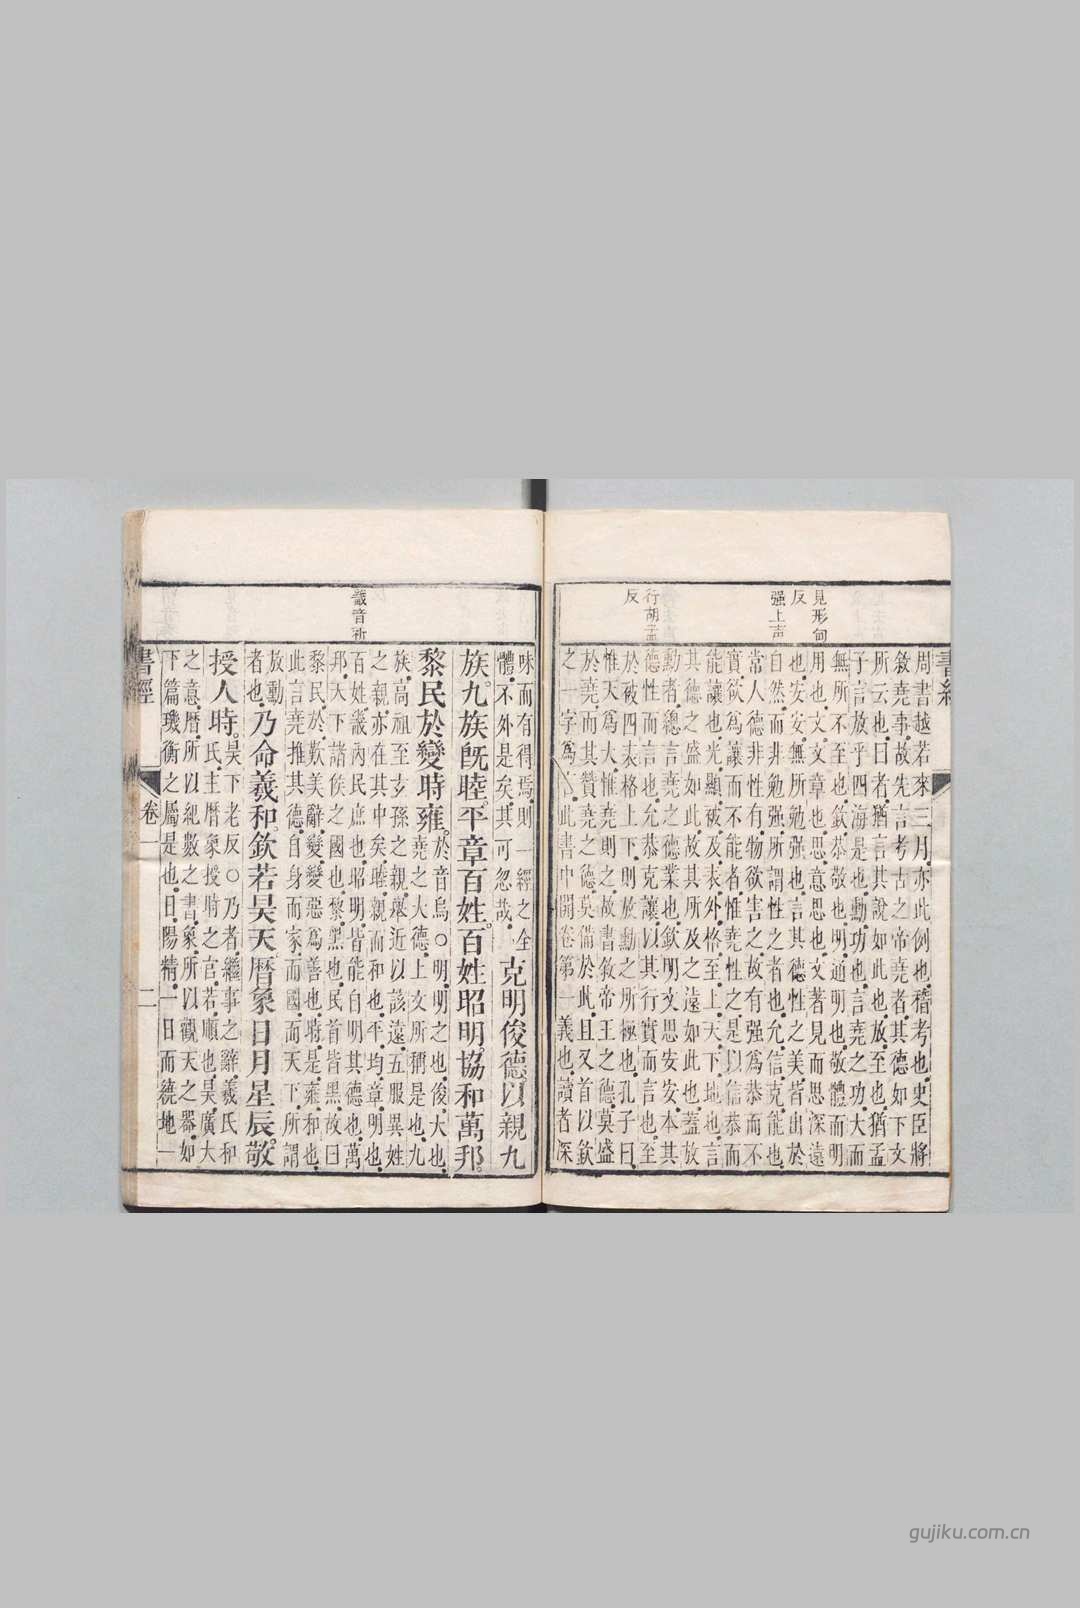 見形甸
反
强上声
行胡孟
反
書經
周書越若來三月.亦此例也.稽考也.史臣將
敘堯事.故先言考古之帝堯者.其德如下文
所云也.曰者.猶言其說如此也.放至也.猶孟
子言放乎四海是也.勳功也.言堯之功.大而
無所不至也.欽恭敬也.明通明也.敬體而明
用也.文文章也.思意思也.文著見而思深遠
也.安安.無所勉强也.言其德性之美.皆出於
自然.而非勉强.所謂性之者也.允信.克能也.
常人德非性有.物欲害之.故有强爲恭而不
實.欲爲讓而不能者.惟堯性之.是以信恭而
能讓也.光顯.被及.表外.格至.上天.下地也.言
其德之盛如此.故其所及之遠如此也.蓋放
勳者.總言堯之德業也.欽明文思安安.本其
德性而言也.允恭克讓.以其行實而言也.至
於被四表格上下.則放勳之所極也.孔子曰.
惟天爲大.惟堯則之.故書敘帝王之德.莫盛
於堯.而其贊堯之德.莫備於此.且又首以欽
之一字爲.此書中開卷第一義也.讀者深
畿音祈
味而有得焉.則一經之全
體.不外是矣.其可忽哉.
克明俊德以親九
族。九族旣睦。平章百姓。百姓昭明。協和萬邦。
黎民於變時雍。
於音烏.○明.明之也.俊.大也.
堯之大德.上文所稱是也.九
族.高祖至玄孫之親.舉近以該遠.五服異姓
之親.亦在其中矣.睦.親而和也.平.均.章.明也.
百姓.畿內民庶也.昭明.皆能自明其德也.萬
邦.天下諸侯之國也.黎.黑也.民首皆黑.故曰
黎民.於.歎美辭.變.變惡爲善也.時.是.雍.和也.
此言堯推其德.自身而家.而國.而天下.所謂
放勳
者也.
乃命羲和。欽若昊天。曆象日月星辰。敬
授人時。
昊下老反.○乃者.繼事之辭.羲氏和
氏.主曆象授時之官.若.順也.昊.廣大
之意.曆.所以紀數之書.象.所以觀天之器.如
下篇璣衡之屬是也.日.陽精.一日而繞地一
書經
卷一
二
gujiku.com.cn